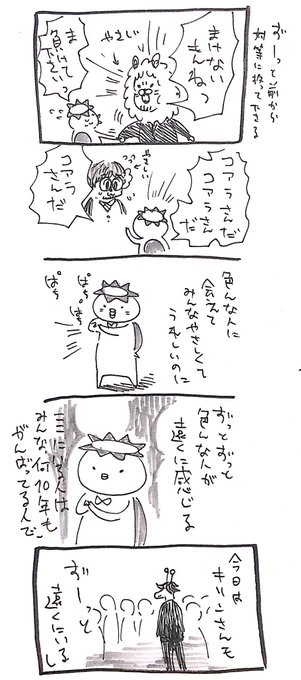 ずーっと前から
対等に扱って下さる
まけない
もんねっ
やさしい
コアラさんだ
コアラさん
だ
やさしい
コアラ
さんだ
色んな人に
会えて
みんなやさしくて
うれしいのに
ぱち
ぱち
ぱち
ずっとずっと
色んな人が
遠くに感じる
ここにいる人は
みんな何10年も
がんばってる人で
今日は
キリンさんも
ずーっと
遠くにいるし